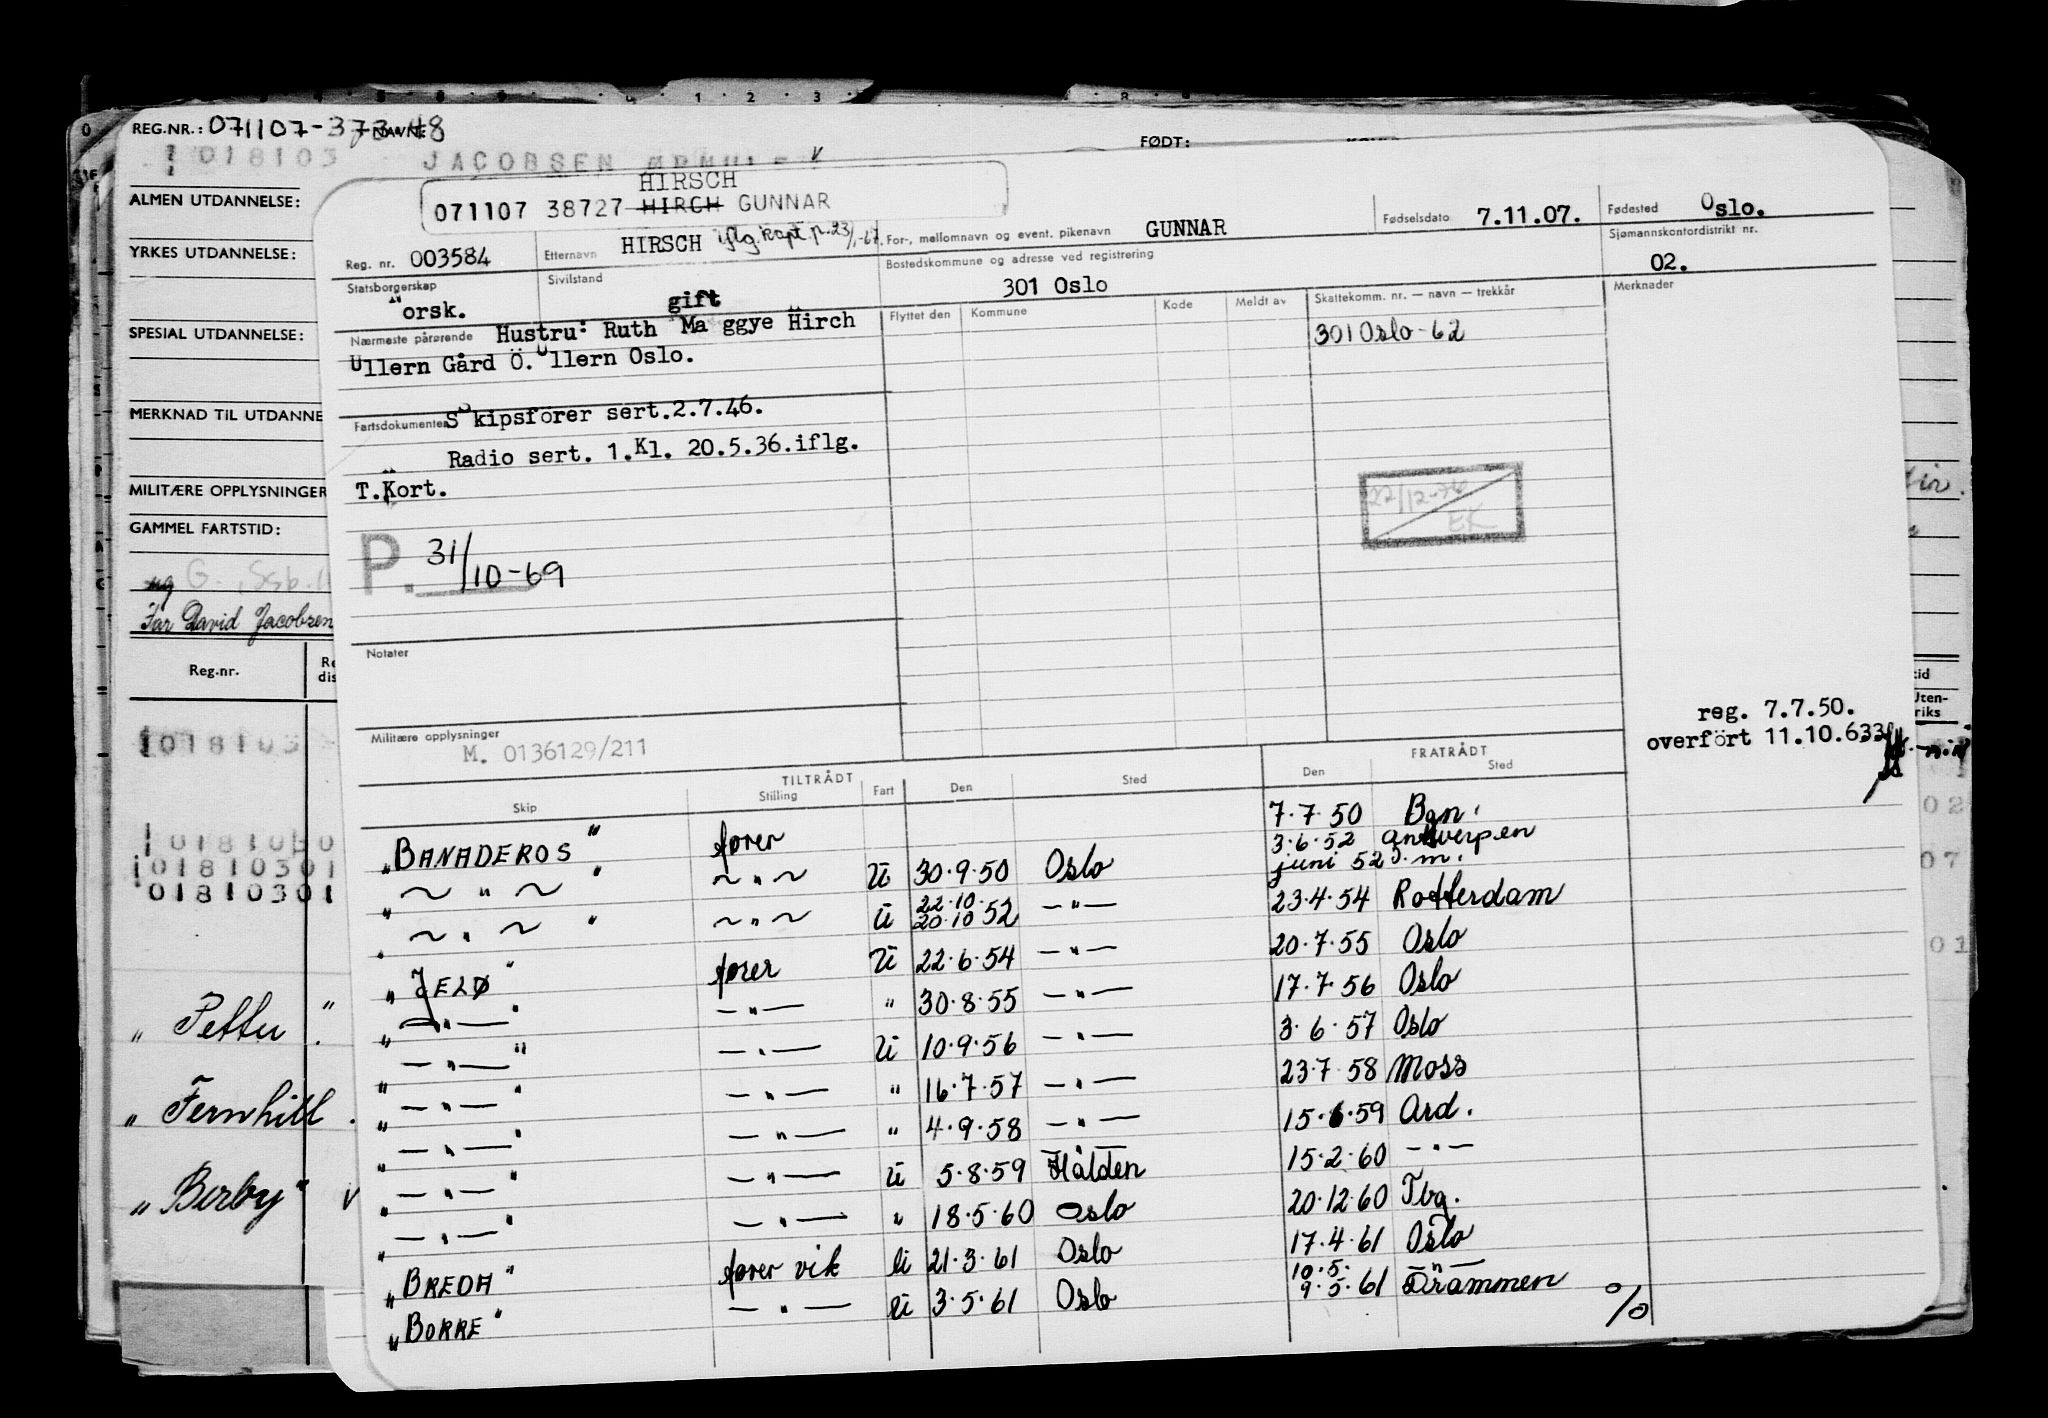 REG.NR.: 071107-373 48 NAVN: FØDT:
018103 JACOBSEN
HIRSCH
071107 38727 HIRCH GUNNAR
ALMEN UTDANNELSE:
YRKES UTDANNELSE:
SPESIAL UTDANNELSE:
MERKNAD TIL UTDANNE
MILITÆRE OPPLYSNINGER
GAMMEL FARTSTID:
Far David Jacobsen
Reg.nr.
018103
0181030
01810301
01810301
" Petter "
" Fernhill
" Berby" v
Reg. nr. 003584 Etternavn HIRSCH iflg. Rapt. p. 23/1-67. For-, mellomnavn og event. pikenavn GUNNAR Fødselsdato 7.11.07. Fødested Oslo.
Statsborgerskap Norsk. Sivilstand gift Bostedskommune og adresse ved registrering 301 Oslo Sjømannskontordistrikt nr. 02.
Nærmeste pårørende Hustru: Ruth Ma ggye Hirch
Ullern Gård Ö. Ullern Oslo.
Flyttet den Kommune Kode Meldt av Skattekomm. nr. — navn — trekkår Merknader
301 Oslo - 62
Fartsdokumenter Skipsförer sert.2.7.46.
Radio sert. 1.Kl. 20.5.36.iflg.
T.Kort.
22/12-76
EK
P. 31/10-69
Notater
Militære opplysninger
M. 0136129/211
reg. 7.7.50.
overfört 11.10.63
TILTRÅDT FRATRÅDT
Skip Stilling Fart Den Sted Den Sted
"BANADEROS" fører 7.7.50 Bgn.
" ~ " ~ " ~ " ~ U 30.9.50 Oslo 3.6.52 Antwerpen
juni 52 d.m.
" ~ " ~ " ~ " ~ U 22.10. 20.10 52 — " — 23.4.54 Rotterdam
"JELØ" fører U 22.6.54 — " — 20.7.55 Oslo
" — " — " — " — " 30.8.55 — " — 17.7.56 Oslo
" — " — " — " — U 10.9.56 — " — 3.6.57 Oslo
" — " — " — " — " 16.7.57 — " — 23.7.58 Moss
" — " — " — " — " 4.9.58 — " — 15.6.59 Ard.
" — " — " — " — U 5.8.59 Halden 15.2.60 — " —
" — " — " — " — " 18.5.60 Oslo 20.12.60 Tbg.
"BREDA" fører vik U 21.3.61 Oslo 17.4.61 Oslo
"BORRE" — " — U 3.5.61 Oslo 10.5. — " — 9.5.61 Drammen
%